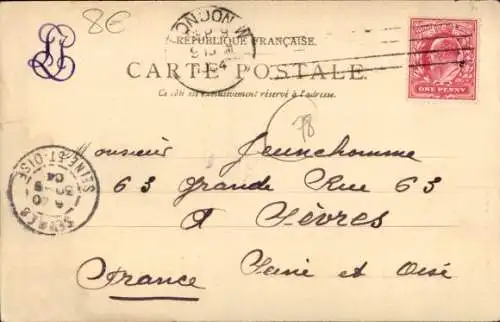 8€
RÉPUBLIQUE FRANÇAISE.
CARTE POSTALE
Ce côté est exclusivement réservé à l'adresse.
LONDON
ONE PENNY
78
Monsieur Jeunehomme
63 Grande Rue 63
à Sèvres
France Seine et Oise
SEVRES
SEINE-ET-OISE
04